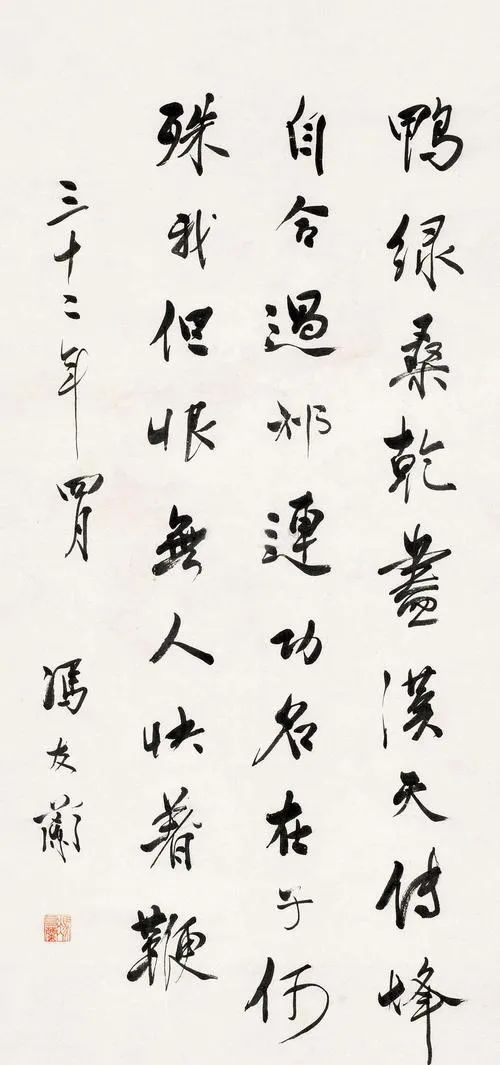 鴨绿桑乾盡漢天傳烽
自合過祁連功名在子何
殊我但恨無人快著鞭
三十二年四月
馮友蘭